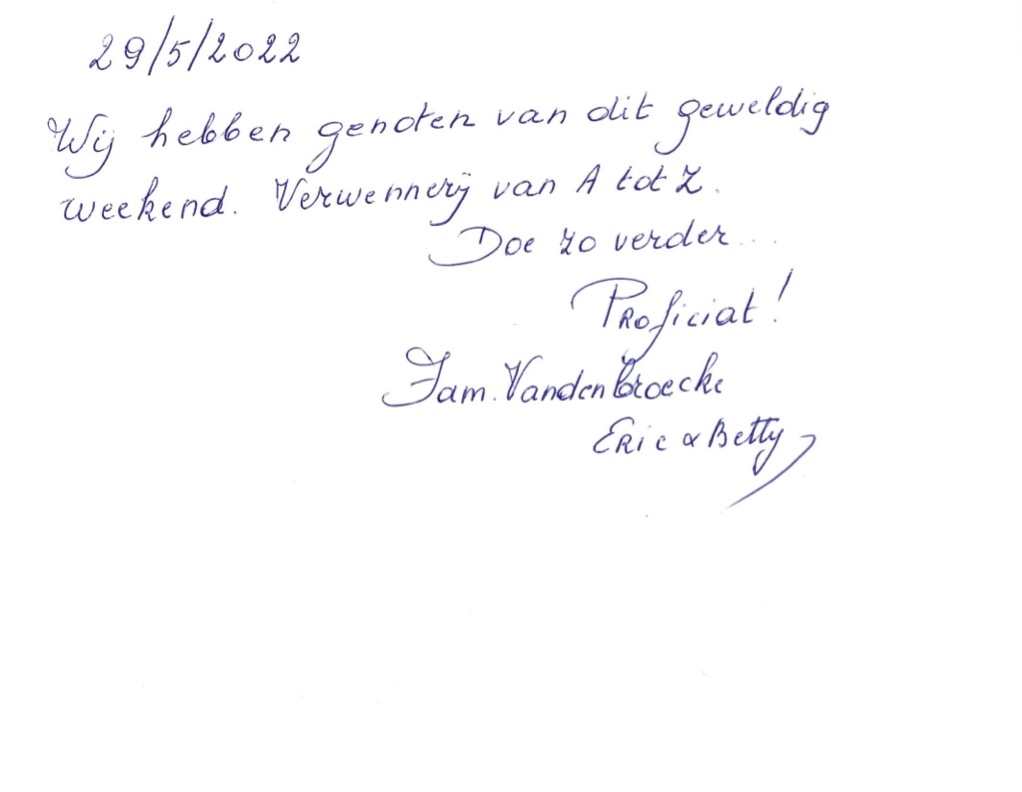 29/5/2022
Wij hebben genoten van dit geweldig
weekend. Verwennerij van A tot Z.
Doe zo verder...
Proficiat!
Fam. Vandenbroecke
Eric & Betty